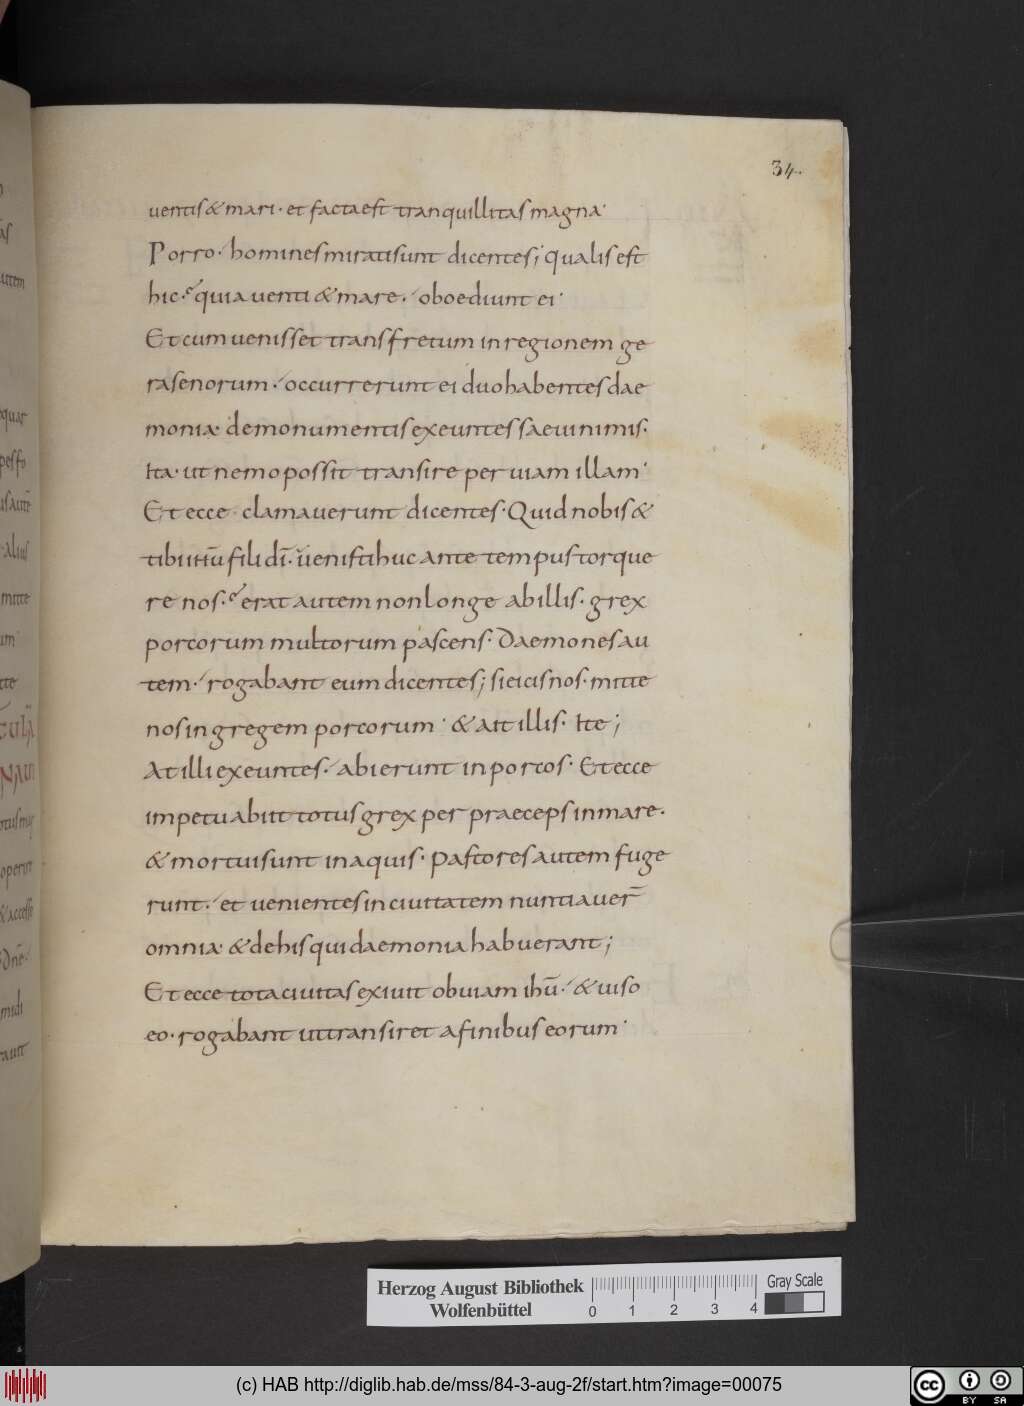 34.
uentis & mari· et facta est tranquillitas magna·
Porro· homines mirati sunt dicentes; qualis est
hic· quia uenti & mare· oboediunt ei·
Et cum uenisset trans fretum in regionem ge
rasenorum· occurrerunt ei duo habentes dae
monia· de monumentis exeuntes saeui nimis·
Ita· ut nemo possit transire per uiam illam·
Et ecce· clamauerunt dicentes· Quid nobis &
tibi ihū fili dī· uenisti huc ante tempus torque
re nos· erat autem non longe ab illis· grex
porcorum multorum pascens· Daemones au
tem· rogabant eum dicentes; si eicis nos· mitte
nos in gregem porcorum· & ait illis· Ite;
At illi exeuntes· abierunt in porcos· Et ecce
impetu abiit totus grex per praeceps in mare·
& mortui sunt in aquis· pastores autem fuge
runt· et uenientes in ciuitatem nuntiauer̄
omnia· & de his qui daemonia habuerant;
Et ecce tota ciuitas exiuit obuiam ihū· & uiso
eo· rogabant ut transiret a finibus eorum·
Herzog August Bibliothek
Wolfenbüttel
0 1 2 3 4
Gray Scale
(c) HAB http://diglib.hab.de/mss/84-3-aug-2f/start.htm?image=00075
cc BY SA